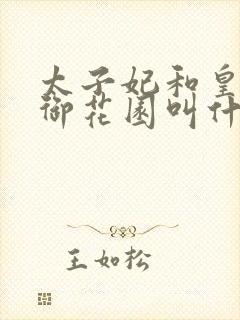 太子妃和皇
御花园叫什
王如松